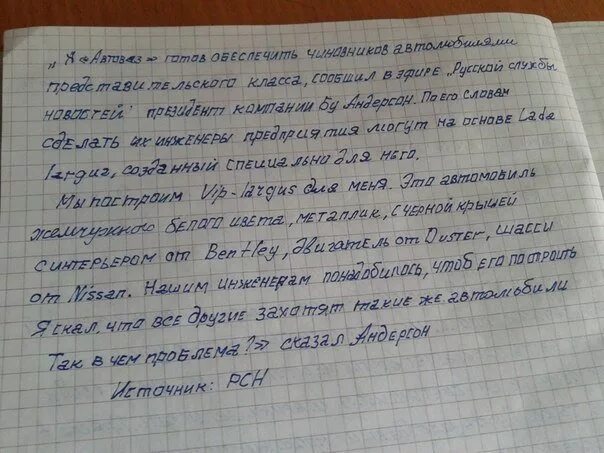 „ А «Автоваз» готов обеспечить чиновников автомобилями
представительского класса, сообщил в эфире „Русской службы
новостей" президент компании Бу Андерсон. По его словам
сделать их инженеры предприятия могут на основе Lada
largus, созданный специально для него.
Мы построим Vip-largus для меня. Это автомобиль
жемчужного белого цвета, металлик, с черной крышей
с интерьером от Bentley, двигатель от Duster, шасси
от Nissan. Нашим инженерам понадобилось, чтоб его построить
Я скал, что все другие захотят такие же автомобили
Так в чем проблема?» сказал Андерсон
Источник: РСН